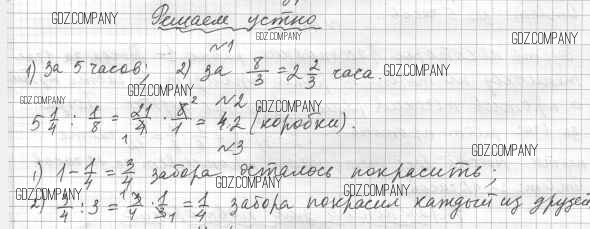 GDZ.COMPANY Решаем устно
GDZ.COMPANY GDZ.COMPANY
№1
1) за 5 часов; 2) за 8/3 = 2 2/3 часа. GDZ.COMPANY
GDZ.COMPANY GDZ.COMPANY
№2 GDZ.COMPANY
5 1/4 : 1/8 = 21/4 · 8/1 = 42 (коробки).
№3 GDZ.COMPANY
1) 1 - 1/4 = 3/4 забора осталось покрасить;
GDZ.COMPANY GDZ.COMPANY GDZ.COMPANY
2) 3/4 : 3 = 3/4 · 1/3 = 1/4 забора покрасил каждый из друзей